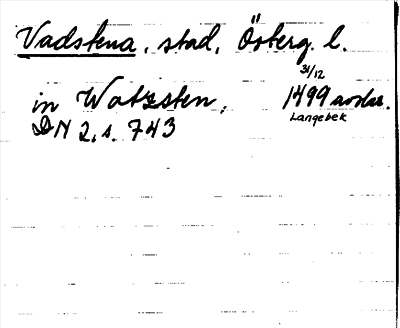 Vadstena, stad, Österg. l.
31/12
in Watzsten, 1499 avskr.
Langebek
DN 2, s. 743